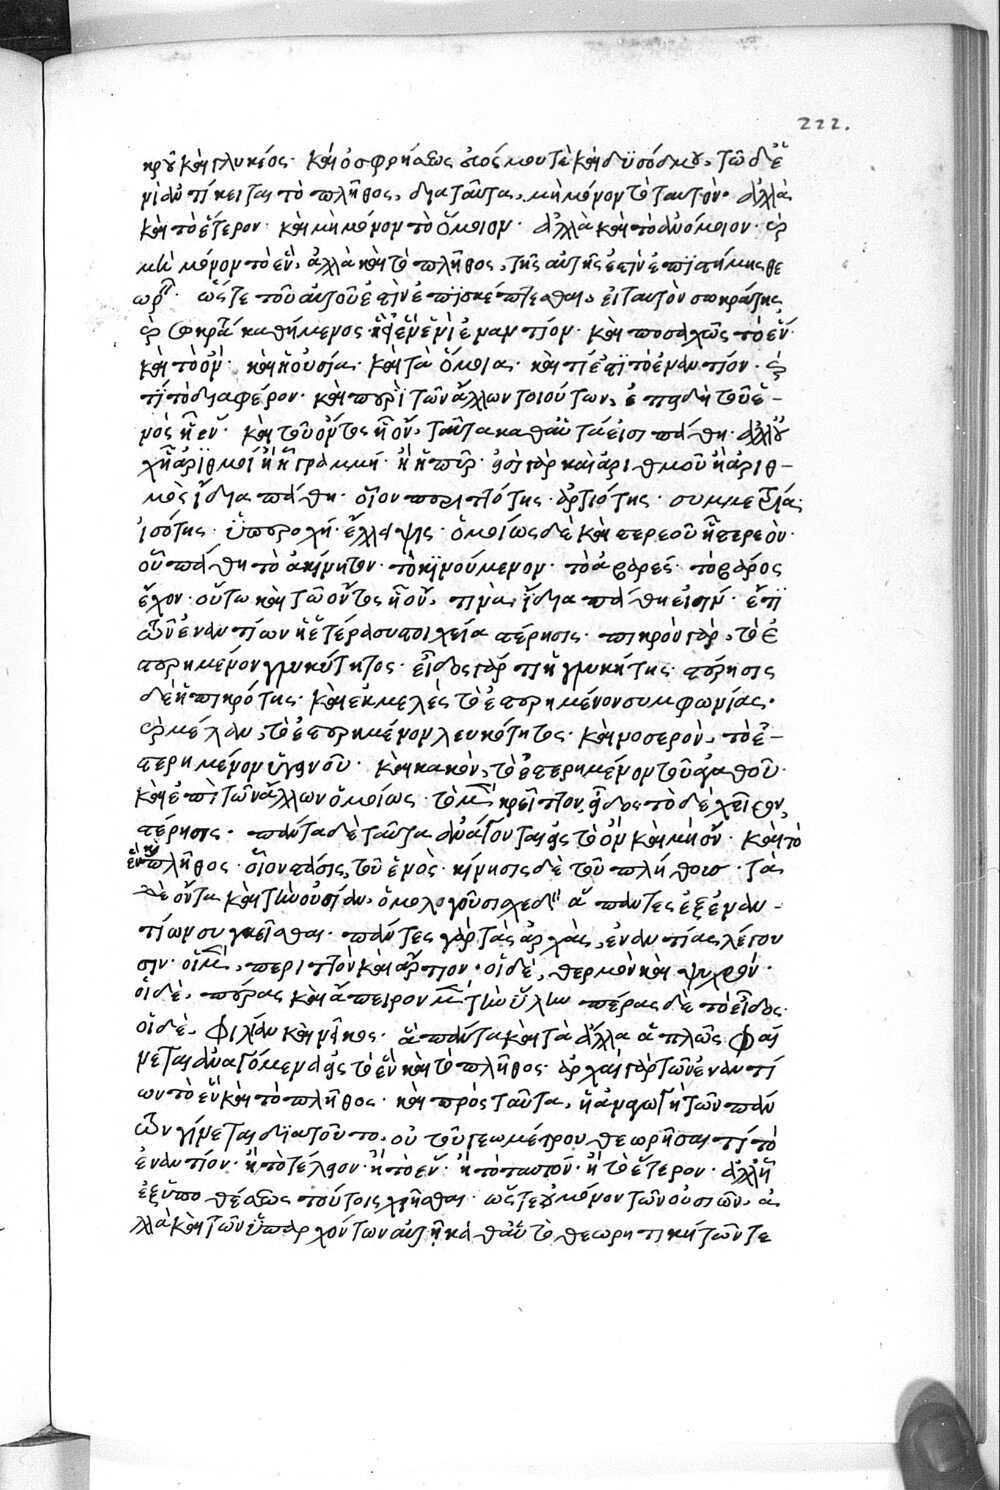 222.
κροῦ καὶ γλυκέος· καὶ ὀσφρήσεως εὐόσμου τὲ καὶ δυσόδμου, τῶ δὲ ἑ
νὶ ἀντίκειται τὸ πλῆθος, διὰ ταῦτα, μὴ μόνον τὸ ταυτὸν· ἀλλὰ
καὶ τὸ ἕτερον· καὶ μὴ μόνον τὸ ὅμοιον· ἀλλὰ καὶ τὸ ἀνόμοιον· καὶ
μὴ μόνον τὸ ἓν, ἀλλὰ καὶ τὸ πλῆθος, τῆς αὐτῆς ἐστὶν ἐπιστήμης θε
ωρ· ὥστε τοῦ αὐτοῦ ἐστὶν ἐπισκέπτεσθαι, εἰ ταυτὸν σωκράτης
καὶ σωκρά καθήμενος· ἢ εἰ ἓν ἑνὶ ἐναντίον· καὶ ποσαχῶς τὸ ἕν·
καὶ τὸ ὄν· καὶ ἡ οὐσία· καὶ τὰ ὅμοια· καὶ τί ἐστι τὸ ἐναντίον· καὶ
τί τὸ διαφέρον· καὶ περὶ τῶν ἄλλων τοιούτων, ἐπειδὴ τοῦ ἑ-
νὸς ᾗ ἕν· καὶ τοῦ ὄντος ᾗ ὄν, ταῦτα καθ' αὑτά εἰσι πάθη· ἀλλ' οὐ
χ ᾗ ἀριθμοί ἢ ᾗ γραμμή· ἢ ᾗ πῦρ· ἔστι γὰρ καὶ ἀριθμοῦ ᾗ ἀριθ-
μὸς ἴδια πάθη· οἷον περιττότης· ἀρτιότης· συμμετρία·
ἰσότης· ὑπεροχή· ἔλλειψις· ὁμοίως δὲ καὶ στερεοῦ ᾗ στερεὸν·
οὗ πάθη τὸ ἀκίνητον· τὸ κινούμενον· τὸ ἀβαρές· τὸ βάρος
ἔχον· οὕτω καὶ τῶ ὄντος ᾗ ὄν, τινὰ ἴδια πάθη εἰσίν· ἔτι
τῶν ἐναντίων ἡ ἑτέρα συστοιχεία στέρησις· πικρὸν γὰρ, τὸ ἐ
στερημένον γλυκύτητος· εἶδος γάρ τι ἡ γλυκύτης· στέρησις
δὲ ἡ πικρότης· καὶ ἐκμελὲς τὸ ἐστερημένον συμφωνίας·
καὶ μέλαν, τὸ ἐστερημένον λευκότητος· καὶ νοσερὸν, τὸ ἐ-
στερημένον ὑγεινοῦ· καὶ κακὸν, τὸ ἐστερημένον τοῦ ἀγαθοῦ·
καὶ ἐπὶ τῶν ἄλλων ὁμοίως· τὸ μὲν κρεῖττον, εἶδος τὸ δὲ χεῖρον,
στέρησις· πάντα δὲ ταῦτα ἀνάγονται εἰς τὸ ὂν καὶ μὴ ὄν· καὶ τὸ
ἓν καὶ πλῆθος· οἷον στάσις, τοῦ ἑνὸς· κίνησις δὲ τοῦ πλήθους· τὰ
δὲ ὄντα καὶ τὴν οὐσίαν, ὁμολογοῦσι σχεδὸν ἅπαντες ἐξ ἐναν-
τίων συγκεῖσθαι· πάντες γὰρ τὰς ἀρχὰς, ἐναντίας λέγου
σιν· οἱ μὲν, περιττὸν καὶ ἄρτιον· οἱ δὲ, θερμὸν καὶ ψυχρόν·
οἱ δὲ, πέρας καὶ ἄπειρον μὲν τὴν ὕλην πέρας δὲ τὸ εἶδος·
οἱ δὲ, φιλίαν καὶ νεῖκος· ἃ πάντα καὶ τὰ ἄλλα ἁπλῶς φαί
νεται ἀναγόμενα εἰς τὸ ἓν καὶ τὸ πλῆθος· ἀρχαὶ γὰρ τῶν ἐναντί
ων τὸ ἓν καὶ τὸ πλῆθος· καὶ πρὸς ταῦτα, ἡ ἀναγωγὴ τῶν πάν
των γίνεται διατοῦτο, οὐ τοῦ γεωμέτρου θεωρῆσαι τί τὸ
ἐναντίον· ἢ τὸ τέλειον· ἢ τὸ ἕν· ἢ τὸ ταυτόν· ἢ τὸ ἕτερον· ἀλλ' ἢ
ἐξ ὑποθέσεως τούτοις χρῆσθαι· ὥστε οὐ μόνον τῶν οὐσιῶν, ἀ
λλὰ καὶ τῶν ὑπαρχόντων αὐτῆ καθ' αὑτὸ θεωρητικὴ τῶν τε